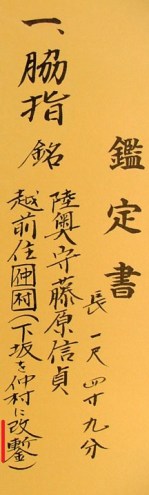 鑑定書
長 一尺四寸九分
一、脇指 銘
陸奥守藤原信貞
越前住仲村(下坂を仲村に改鏨)